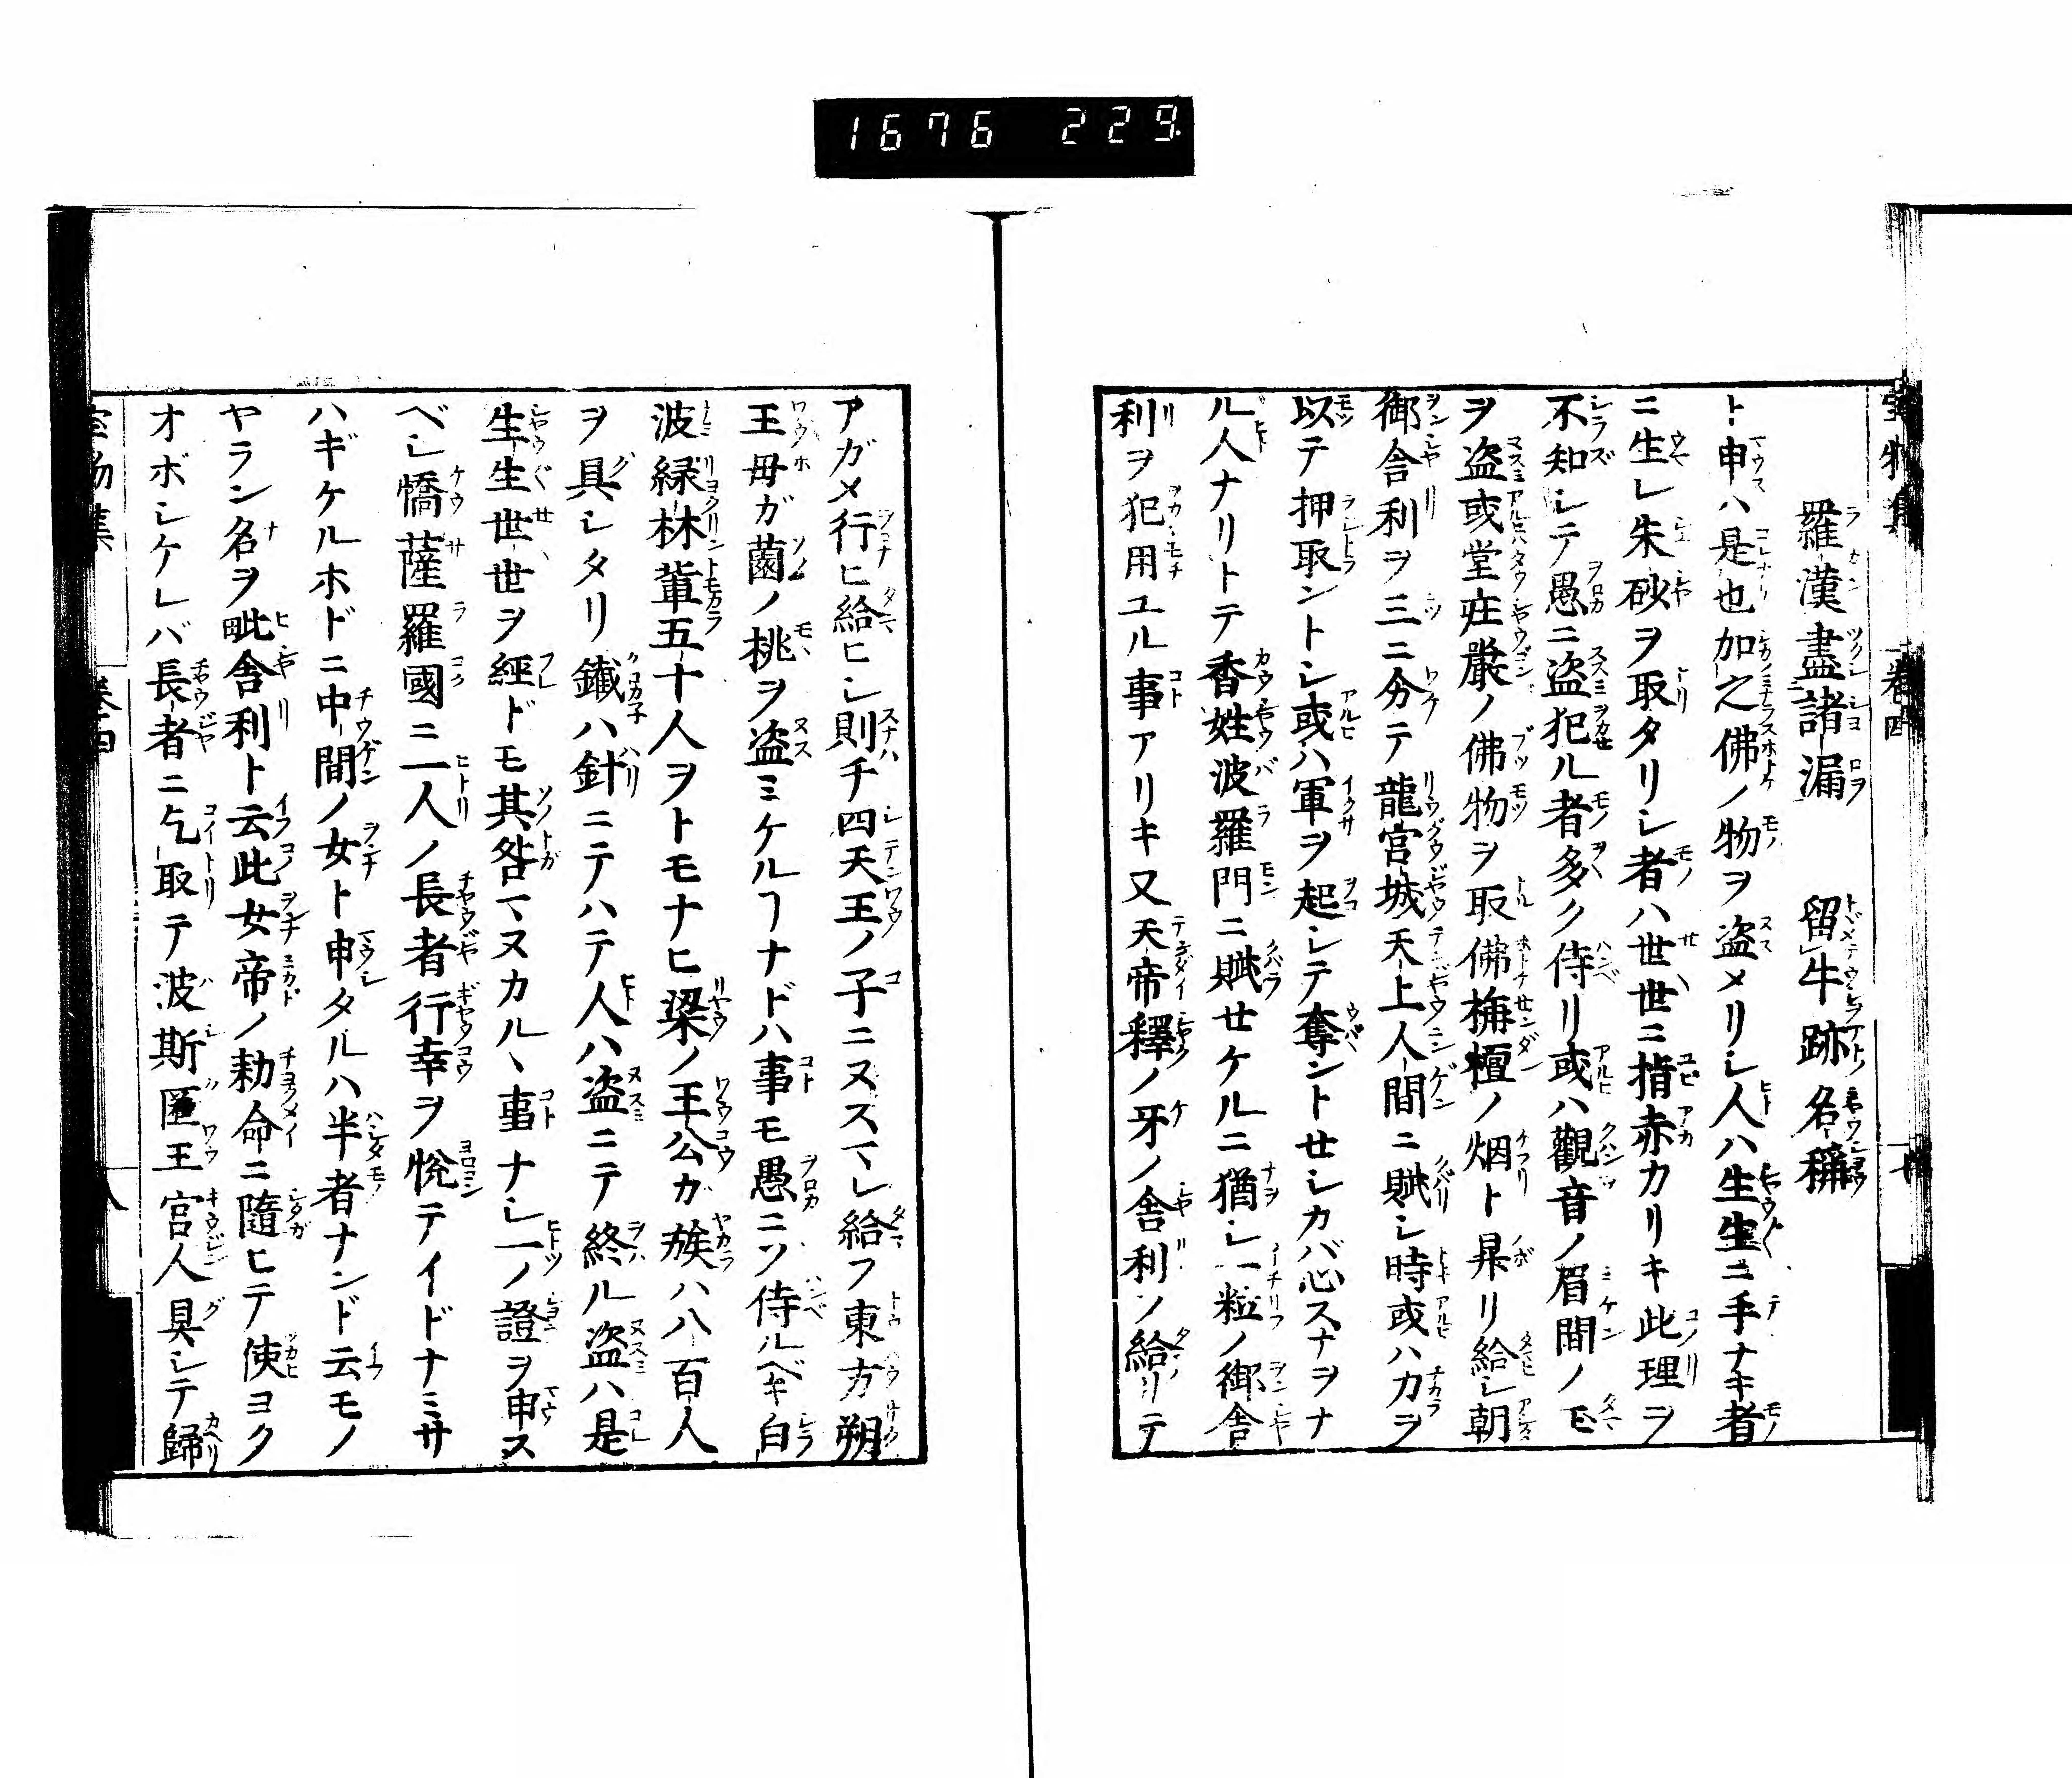 1676 229
羅漢盡諸漏 留牛跡名稱
ト申ハ是也加之佛ノ物ヲ盗メリシ人ハ生生ニ手ナキ者
ニ生レ朱砂ヲ取タリシ者ハ世世ニ指赤カリキ此理ヲ
不知シテ愚ニ盗犯ル者多ク侍リ或ハ觀音ノ眉間ノ玉
ヲ盗或堂庄嚴ノ佛物ヲ取佛栴檀ノ烟ト昇リ給シ朝
御舎利ヲ三ニ分テ龍宮城天上人間ニ賦シ時或ハ力ヲ
以テ押取ントシ或ハ軍ヲ起シテ奪ントセシカバ心スナヲナ
ル人ナリトテ香姓波羅門ニ賦セケルニ猶シ一粒ノ御舎
利ヲ犯用ユル事アリキ又天帝釋ノ牙ノ舎利ソ給リテ
アガメ行ヒ給ヒシ則チ四天王ノ子ニヌスマレ給フ東方朔
王母ガ薗ノ桃ヲ盗ミケルヿナドハ事モ愚ニソ侍ルベキ白
波緑林輩五十人ヲトモナヒ梁ノ王公ガ族ハ八百人
ヲ具シタリ鐡ハ針ニテハテ人ハ盗ニテ終ル盗ハ是
生生世世ヲ經ドモ其咎マヌカルヽ事ナシ一ノ證ヲ申ス
ベシ憍薩羅國ニ一人ノ長者行幸ヲ悦テイドナミサ
ハギケルホドニ中間ノ女ト申タルハ半者ナンド云モノ
ヤラン名ヲ毗舎利ト云此女帝ノ勅命ニ隨ヒテ使ヨク
オボシケレバ長者ニ乞取テ波斯匿王宮人具シテ歸